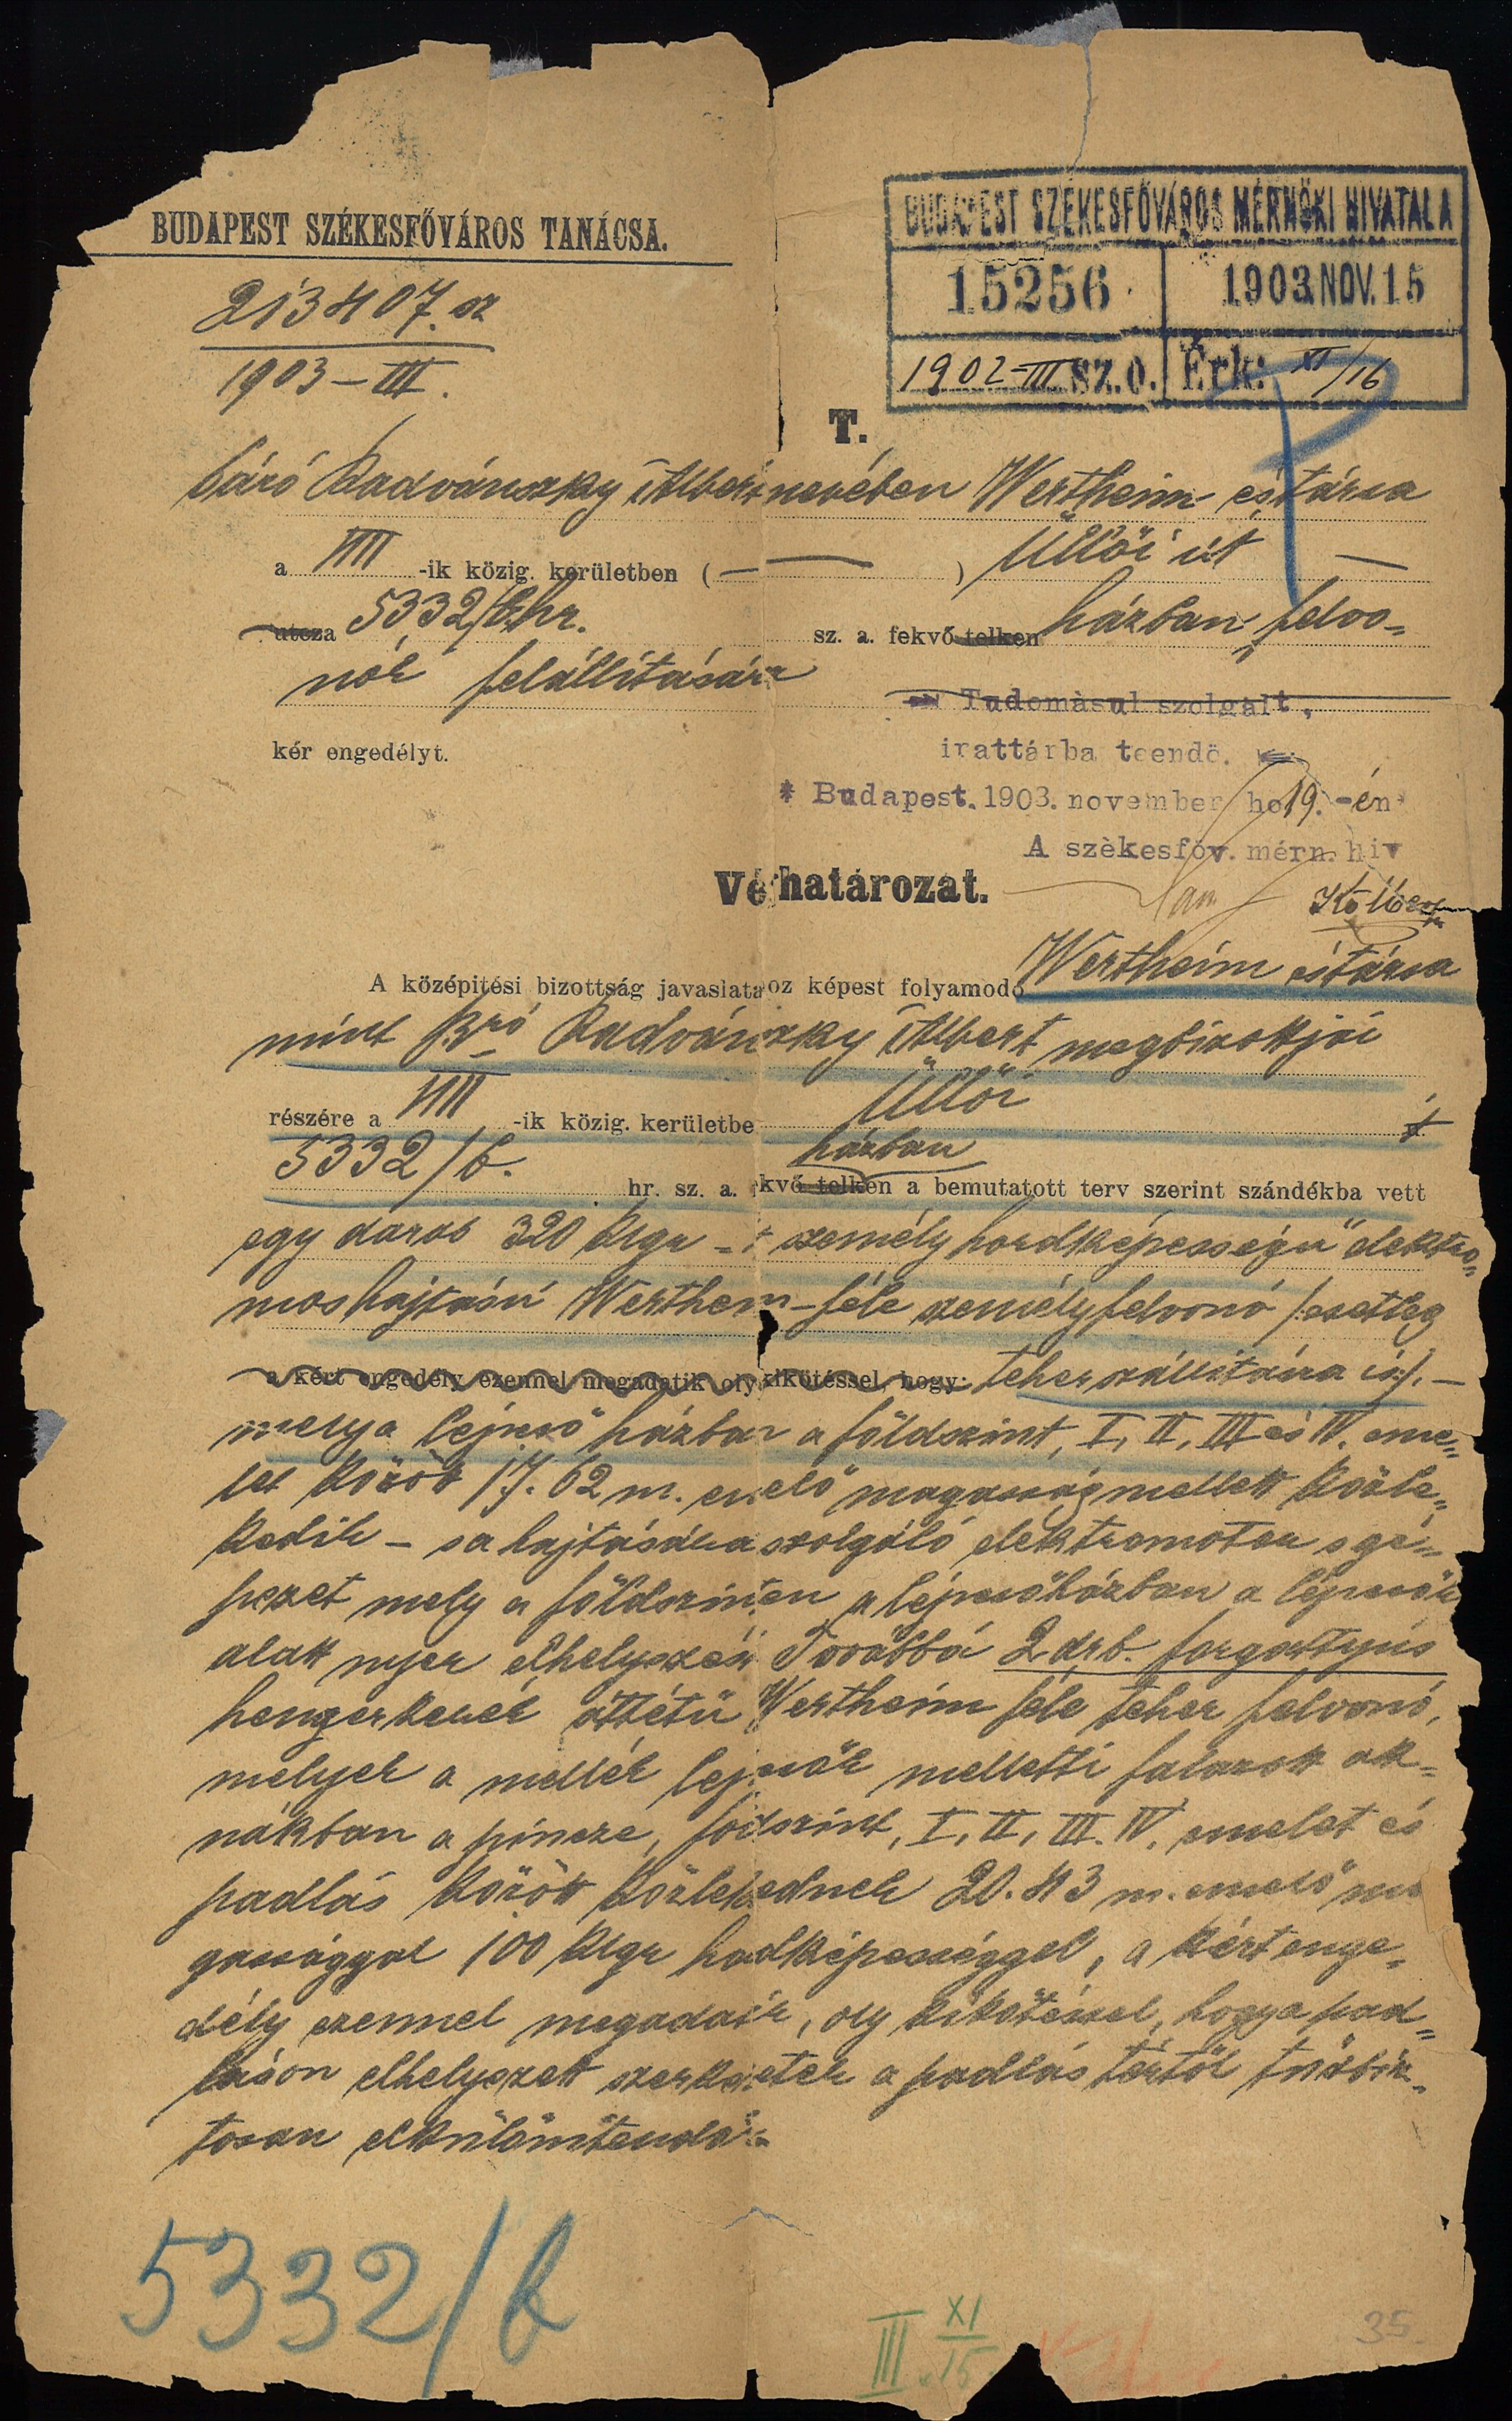 BUDAPEST SZÉKESFŐVÁROS TANÁCSA.
213407. sz
1903-III.
BUDAPEST SZÉKESFŐVÁROS MÉRNÖKI HIVATALA
15256 1903 NOV. 15
1902-III sz. o. Érk: XI/16
T.
báró Radvánszky Albert nevében Wertheim és társa
a VIII -ik közig. kerületben ( — ) Üllői út —
utcza 5332/b. hr. sz. a. fekvő telken házban felvo=
nók felállítására
kér engedélyt.
Tudomàsul szolgàlt,
irattárba teendö.
* Budapest. 1903. november hó 19. -én
A szèkesföv. mérn. hiv
Véghatározat.
A középitési bizottság javaslatához képest folyamodó Wertheim és társa
mint Bró Radvánszky Albert megbizottjai
részére a VIII -ik közig. kerületbe Üllői út
5332/b. házban
hr. sz. a. fekvő telken a bemutatott terv szerint szándékba vett
egy darab 320 klgr - személy hordképességű elektro=
mos hajtású Wertheim-féle személyfelvonó /:esetleg
a kért engedély ezennel megadatik oly kikötéssel, hogy: teherszállításra is:/. —
mely a lépcső házban a földszint, I, II, III és IV. eme=
let között 17.62 m. emelő magasság mellett közle=
kedik – s a hajtására szolgáló elektromotor s gé=
pezet mely a földszinten a lépcsőházban a lépcsők
alatt nyer elhelyezést Továbbá 2 drb. forgattyús
hengerkerék áttétű Wertheim féle teher felvonó,
melyek a mellék lépcsők melletti falazott ak=
nákban a pincze, földszint, I, II, III. IV. emelet és
padlás között közlekednek 20.43 m. emelő ma
gassággal 100 klgr hordképességgel, a kért enge=
dély ezennel megadatik, oly kikötéssel, hogy a pad=
láson elhelyezett szerkezetek a padlás tértől tűzbiz=
tosan elkülönítendők
5332/b
III XI/15
35